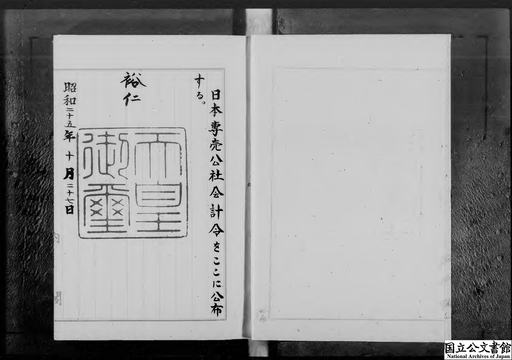 日本専売公社会計令をここに公布
する。
裕仁
天皇
御璽
昭和二十五年十月二十七日
国立公文書館
National Archives of Japan